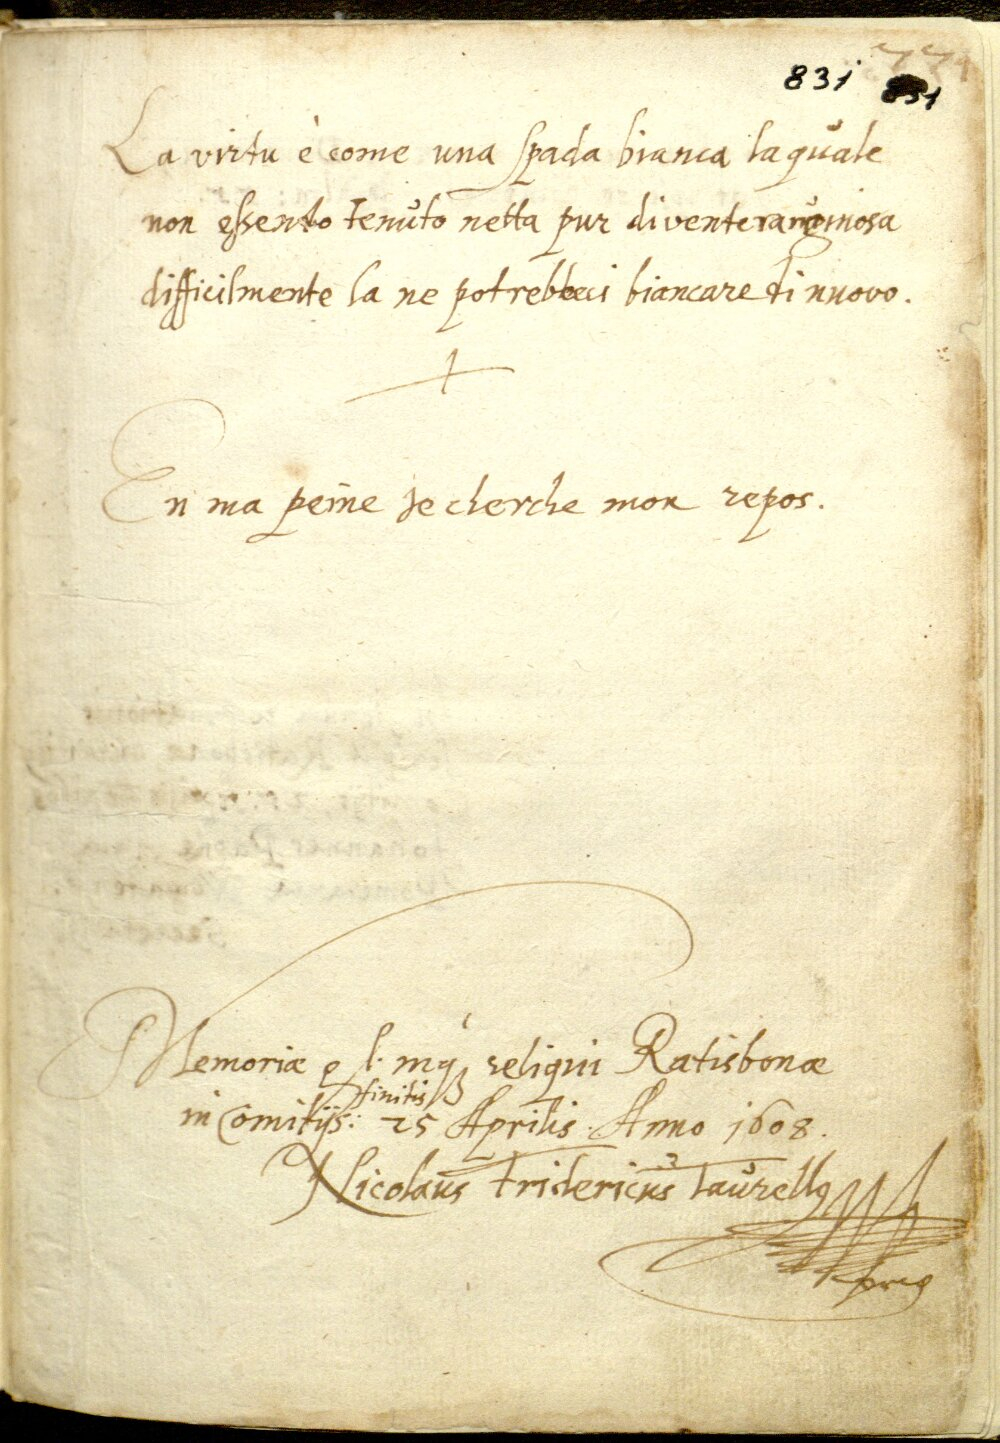 831 831
La virtu è come una spada bianca laquale
non essendo tenuto netta pur diventeraruginosa
difficilmente la ne potrebbeci biancare di nuovo.
En ma peine je cherche mon repos.
Memoriæ l. mq reliqui Ratisbonæ
finitis
in Comitijs: 25 Aprilis. Anno 1608.
Nicolaus Fridericus Taurellg